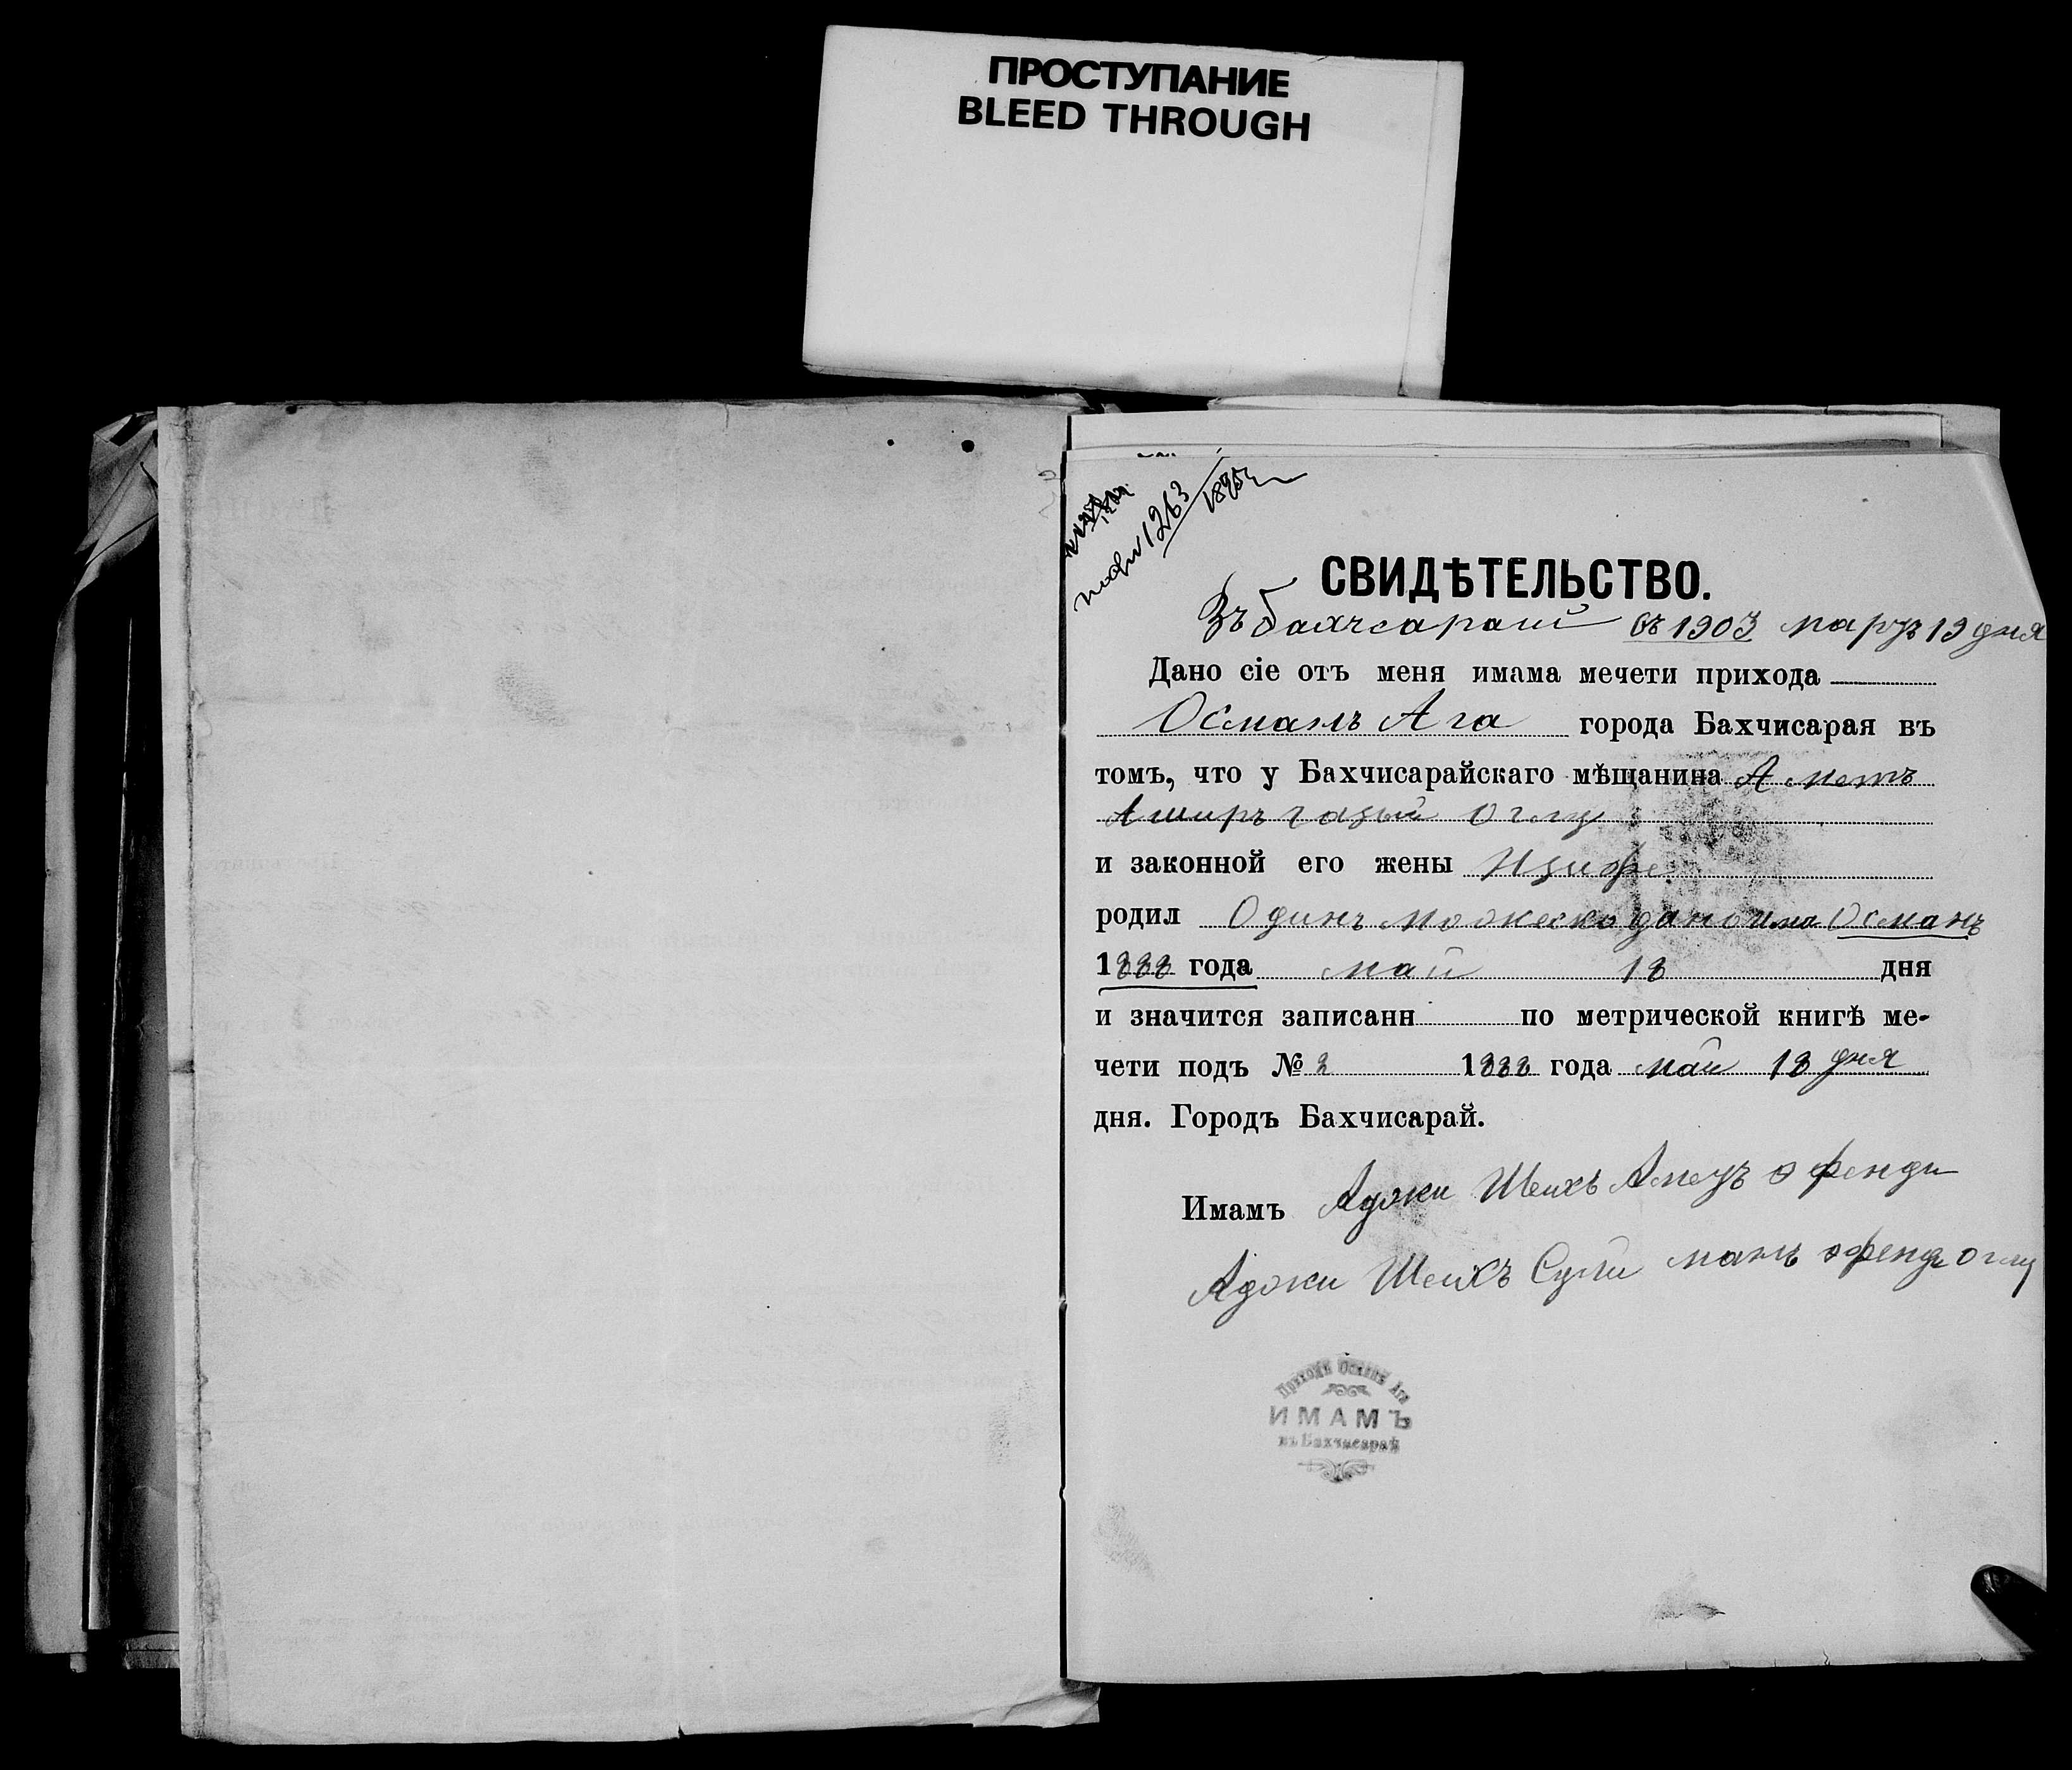 ПРОСТУПАНИЕ
BLEED THROUGH
1263
1895
СВИДѢТЕЛЬСТВО.
Въ бахчсарай въ 1903 марзъ 19 дня
Дано сіе отъ меня имама мечети прихода
Османъ Ага города Бахчисарая въ
томъ, что у Бахчисарайскаго мѣщанина Аметъ
Аширъ газый оглу
и законной его жены
родил Одинъ има Османъ
1888 года май 18 дня
и значится записанн по метрической книгѣ ме-
чети подъ № 2 1888 года май 18 дня
дня. Городъ Бахчисарай.
Имамъ Аджи Шеихъ Амезъ эфенди
Аджи Шеихъ Сулиманъ эфенди оглу
Приходъ Османъ Ага
ИМАМЪ
въ Бахчисараѣ